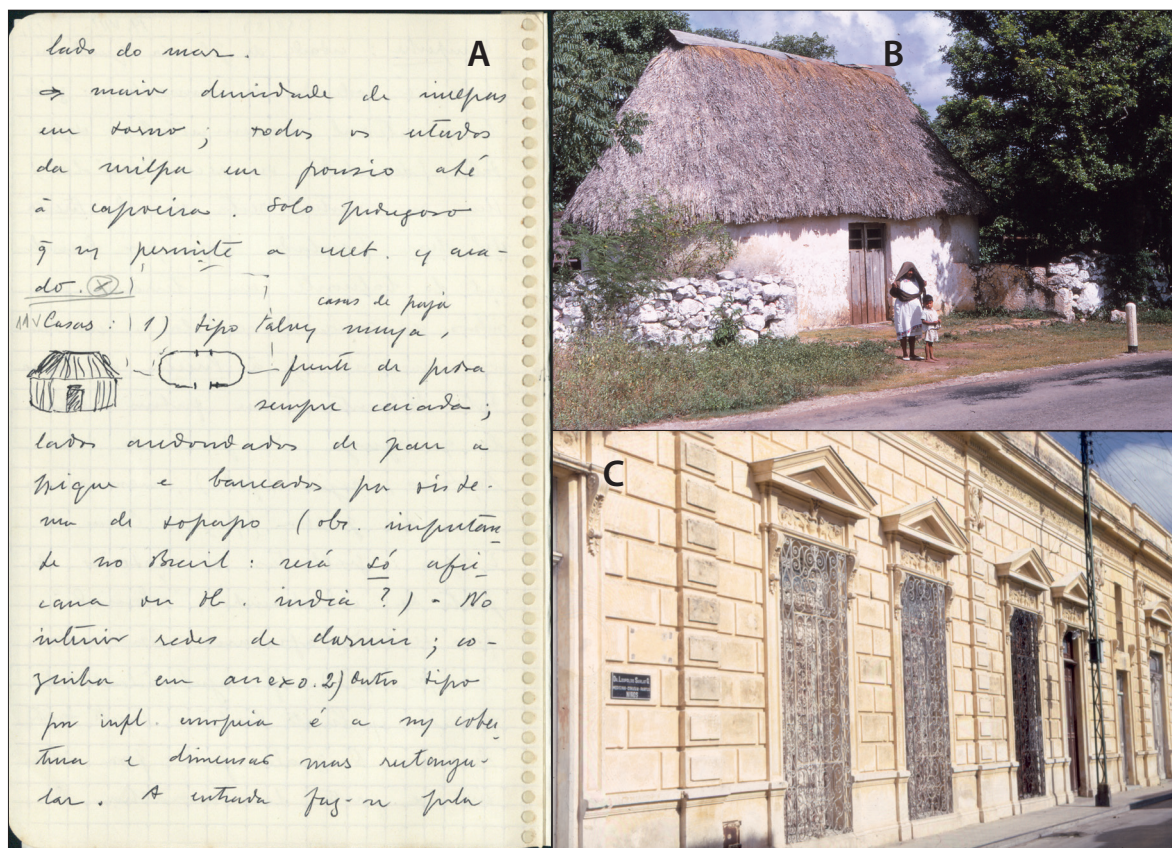 A
lado do mar.
maior densidade de milpas
em torno; todos os estados
da milpa em pousio até
à capoeira. Solo pedregoso
permite a
do.
casas de paja
Casas: 1) tipo Talvez maya,
frente de pedra
sempre caiada;
lados arredondados de pau a
pique e barreados por siste-
ma de sopapo (obs. importan
te no Brasil: será só afri-
cana ou tb. india?) - No
interior redes de dormir; co-
zinha em anexo. 2) Outro tipo
por infl. europeia é a cober
tura e dimensão mas rectangu-
lar. A entrada faz-se pela
B
C